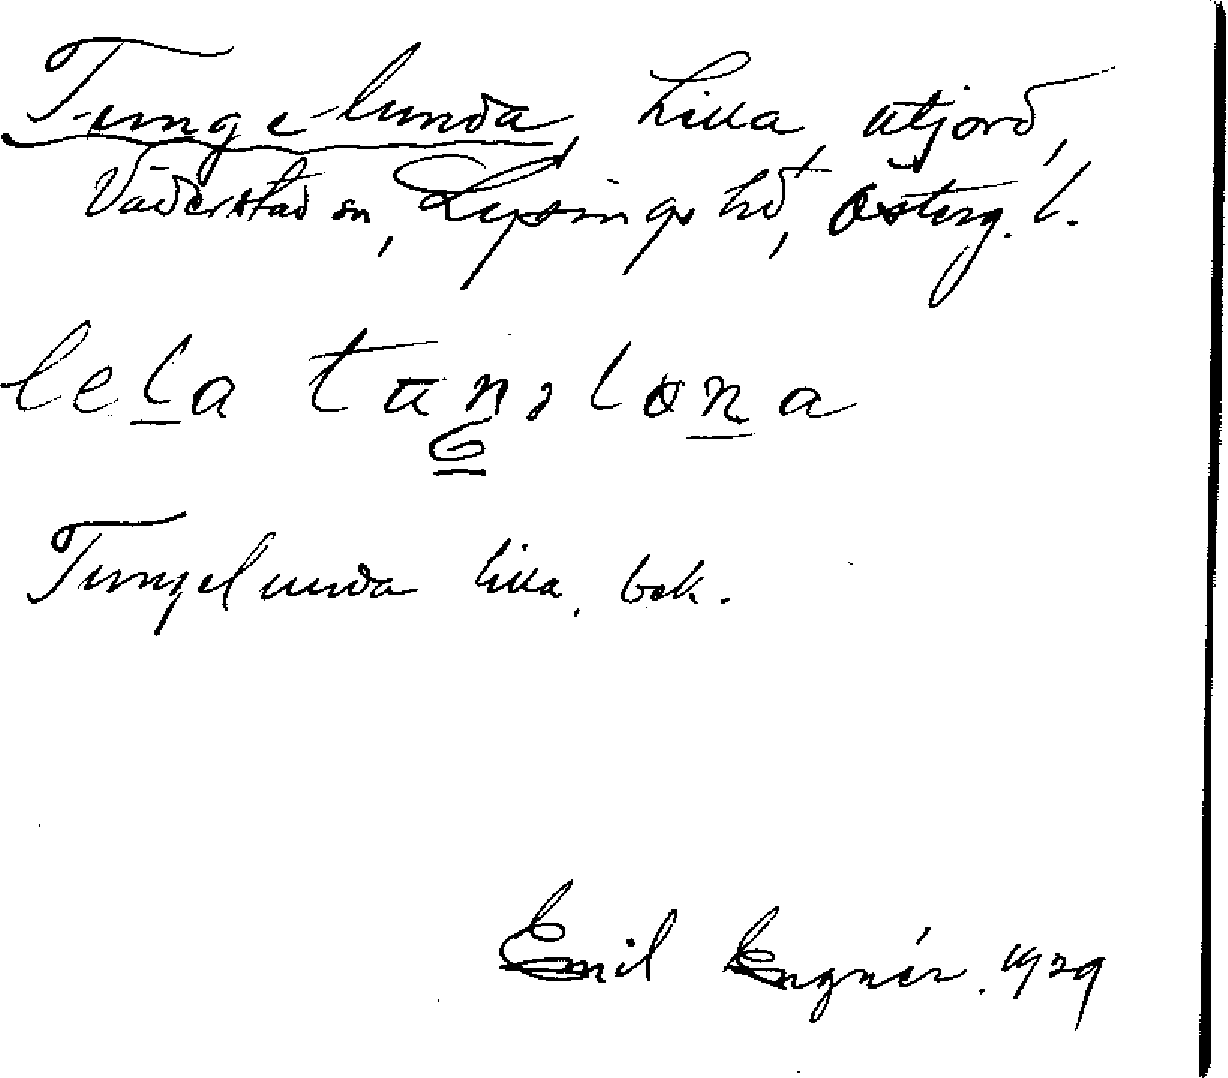 Tungelunda, Lilla utjord,
Väderstad sn, Lysings hd, Österg. l.
Tungelunda lilla, bok.
Emil Engnér. 1929